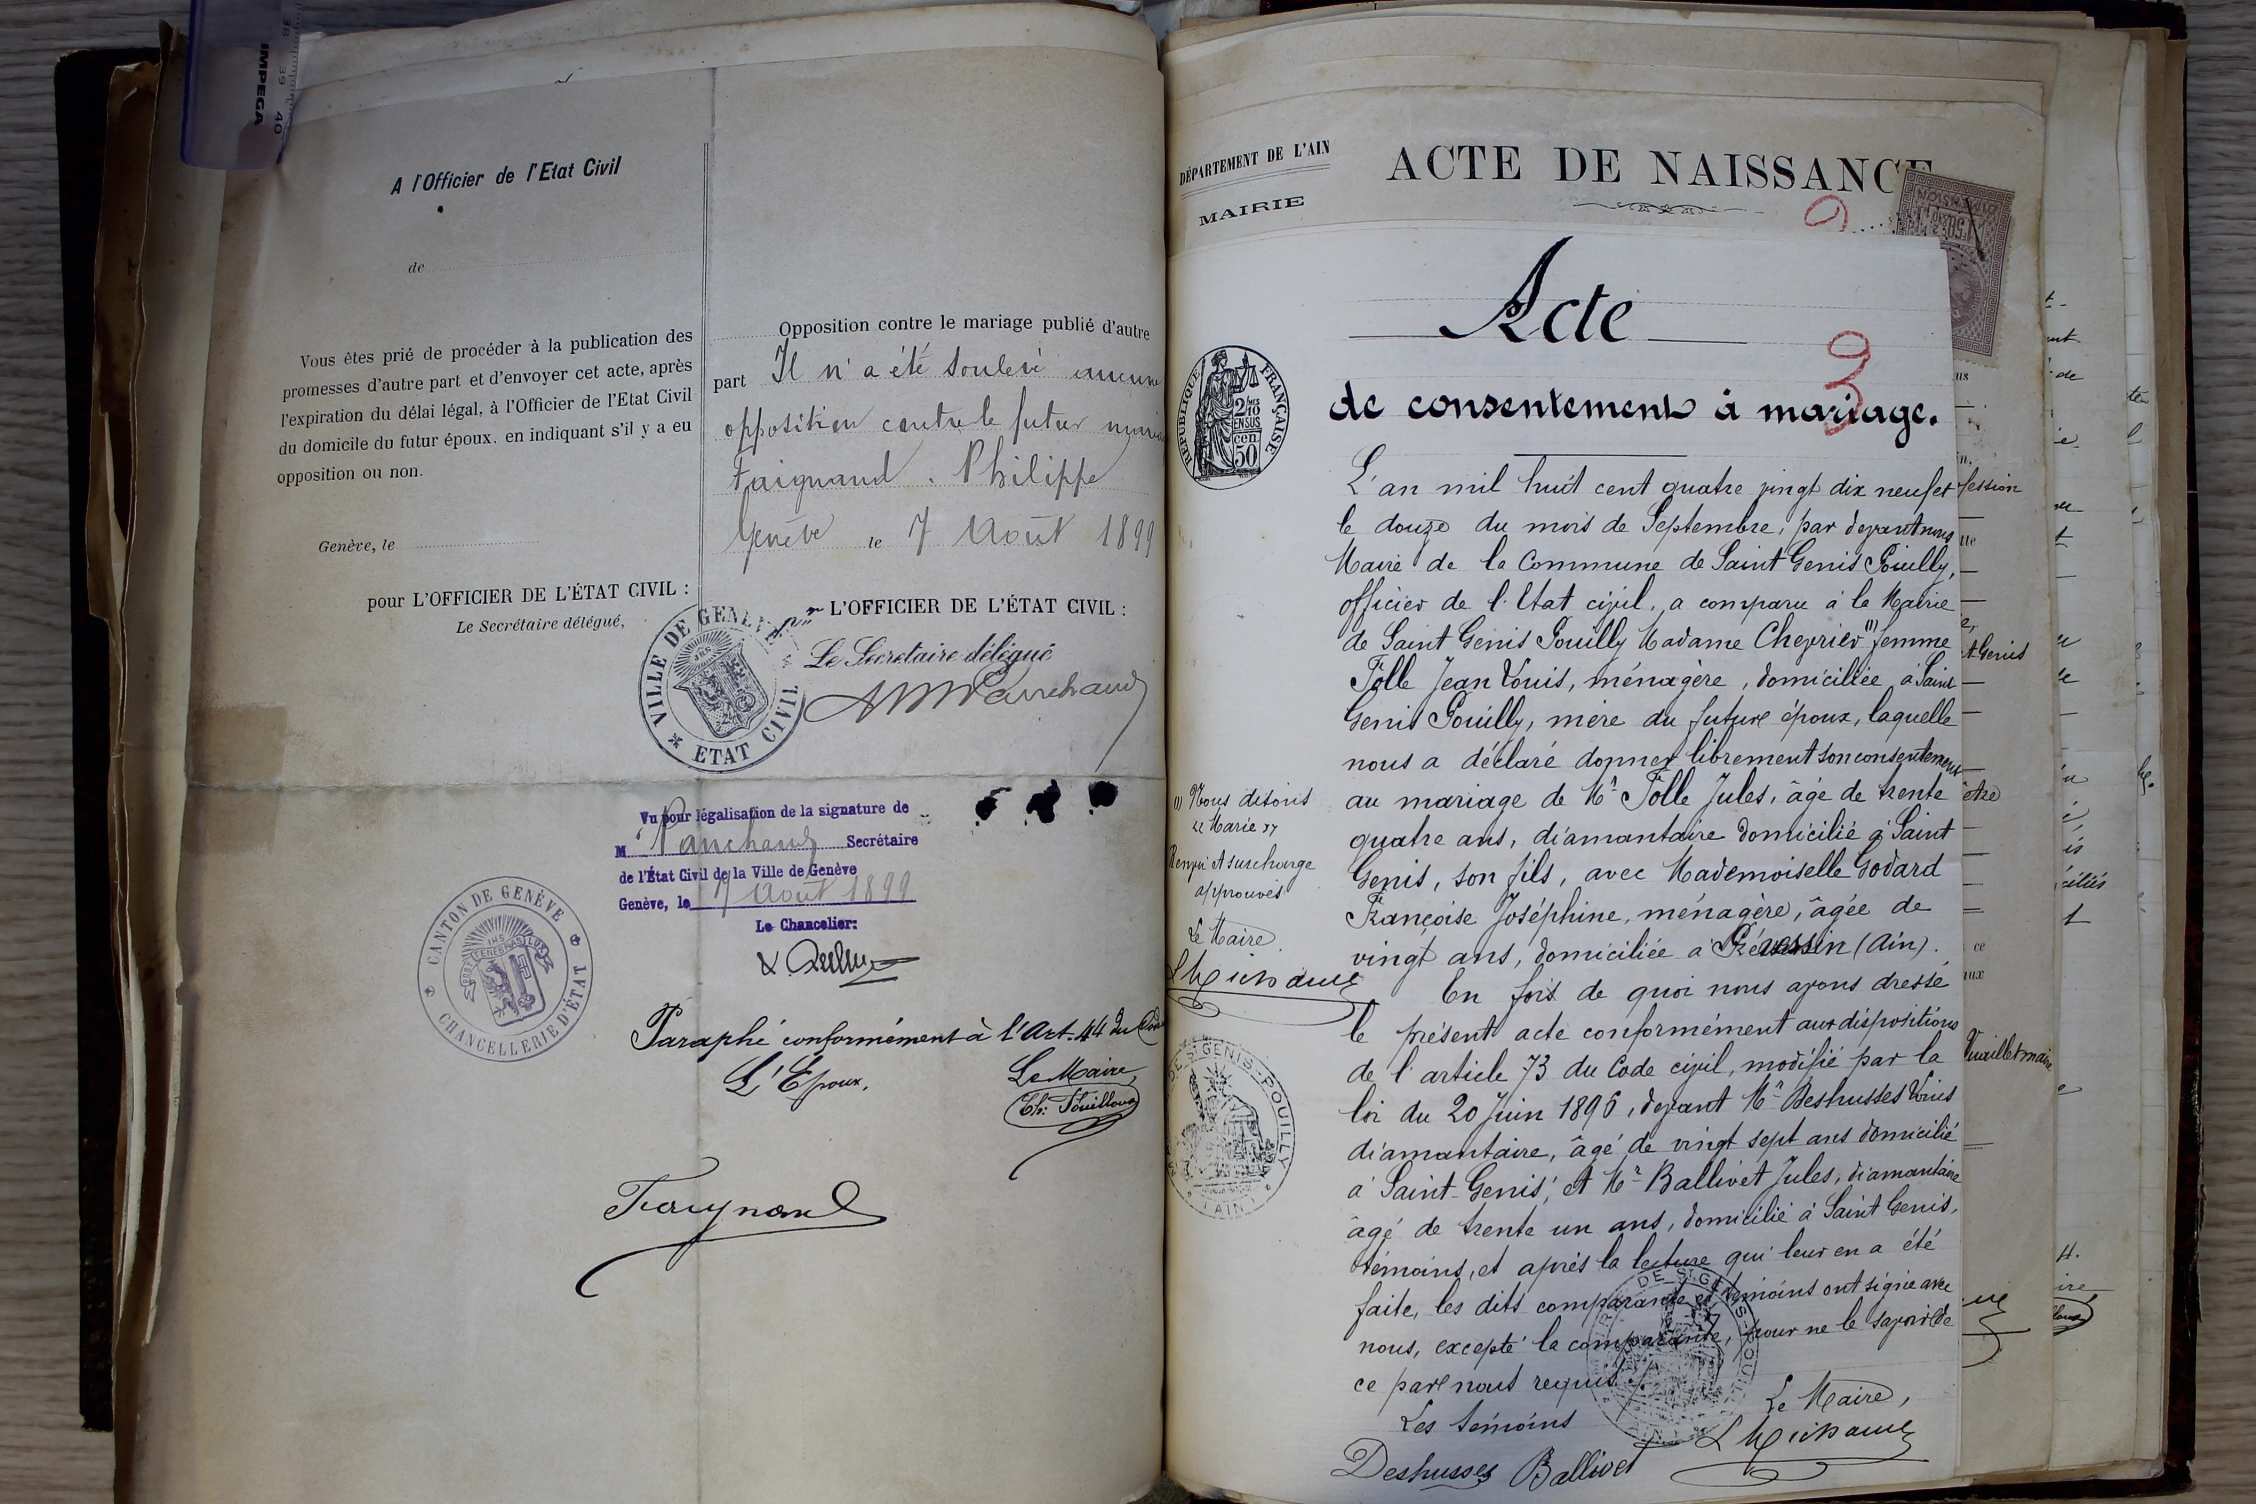 IMPEGA
38 39 40
A l'Officier de l'Etat Civil
de
Vous êtes prié de procéder à la publication des
promesses d'autre part et d'envoyer cet acte, après
l'expiration du délai légal, à l'Officier de l'Etat Civil
du domicile du futur époux. en indiquant s'il y a eu
opposition ou non.
Genève, le
pour L'OFFICIER DE L'ÉTAT CIVIL :
Le Secrétaire délégué,
Opposition contre le mariage publié d'autre
part Il n'a été soulevé aucune
opposition contre le futur
Faignand. Philippe
Genève le 7 Août 1899
pr L'OFFICIER DE L'ÉTAT CIVIL :
Le Secrétaire délégué
VILLE DE GENÈVE
ETAT CIVIL
Vu pour légalisation de la signature de
M Panchaud Secrétaire
de l'État Civil de la Ville de Genève
Genève, le 7 Août 1899
Le Chancelier:
CANTON DE GENÈVE
POST TENEBRAS LUX
CHANCELLERIE D'ÉTAT
Paraphé conformément à l'Art. 44 du
L'Époux,
Le Maire,
Faignand
DÉPARTEMENT DE L'AIN
MAIRIE
ACTE DE NAISSANCE
3
RÉPUBLIQUE FRANÇAISE
2/10 EN SUS
50 cen
Acte
de consentement à mariage.
L'an mil huit cent quatre vingt dix neuf et
le douze du mois de Septembre, par devant nous
Maire de la Commune de Saint Genis Pouilly,
officier de l'Etat civil, a comparu à la Mairie
de Saint Genis Pouilly Madame Chevrier (1) femme
Folle Jean Louis, ménagère, domiciliée à Saint
Genis Pouilly, mère du future époux, laquelle
nous a déclaré donner librement son consentement
au mariage de Mr Folle Jules, âgé de trente
quatre ans, diamantaire domicilié à Saint
Genis, son fils, avec Mademoiselle Godard
Françoise Joséphine, ménagère, âgée de
vingt ans, domiciliée à Prévessin (Ain).
En fois de quoi nous avons dressé
le présent acte conformément aux dispositions
de l'article 73 du Code civil, modifié par la
loi du 20 Juin 1896, devant Mr Deshusses Louis
diamantaire, âgé de vingt sept ans domicilié
à Saint-Genis, et Mr Ballivet Jules, diamantaire
âgé de trente un ans, domicilié à Saint Genis,
témoins, et après la lecture qui leur en a été
faite, les dits comparante et témoins ont signé avec
nous, excepté la comparante, pour ne le savoir de
ce par nous requis.
Les témoins
Le Maire,
Deshusses Ballivet
(1) Nous disons
Renvoi et surcharge
approuvés
Le Maire.
ST GENIS-POUILLY
(AIN)